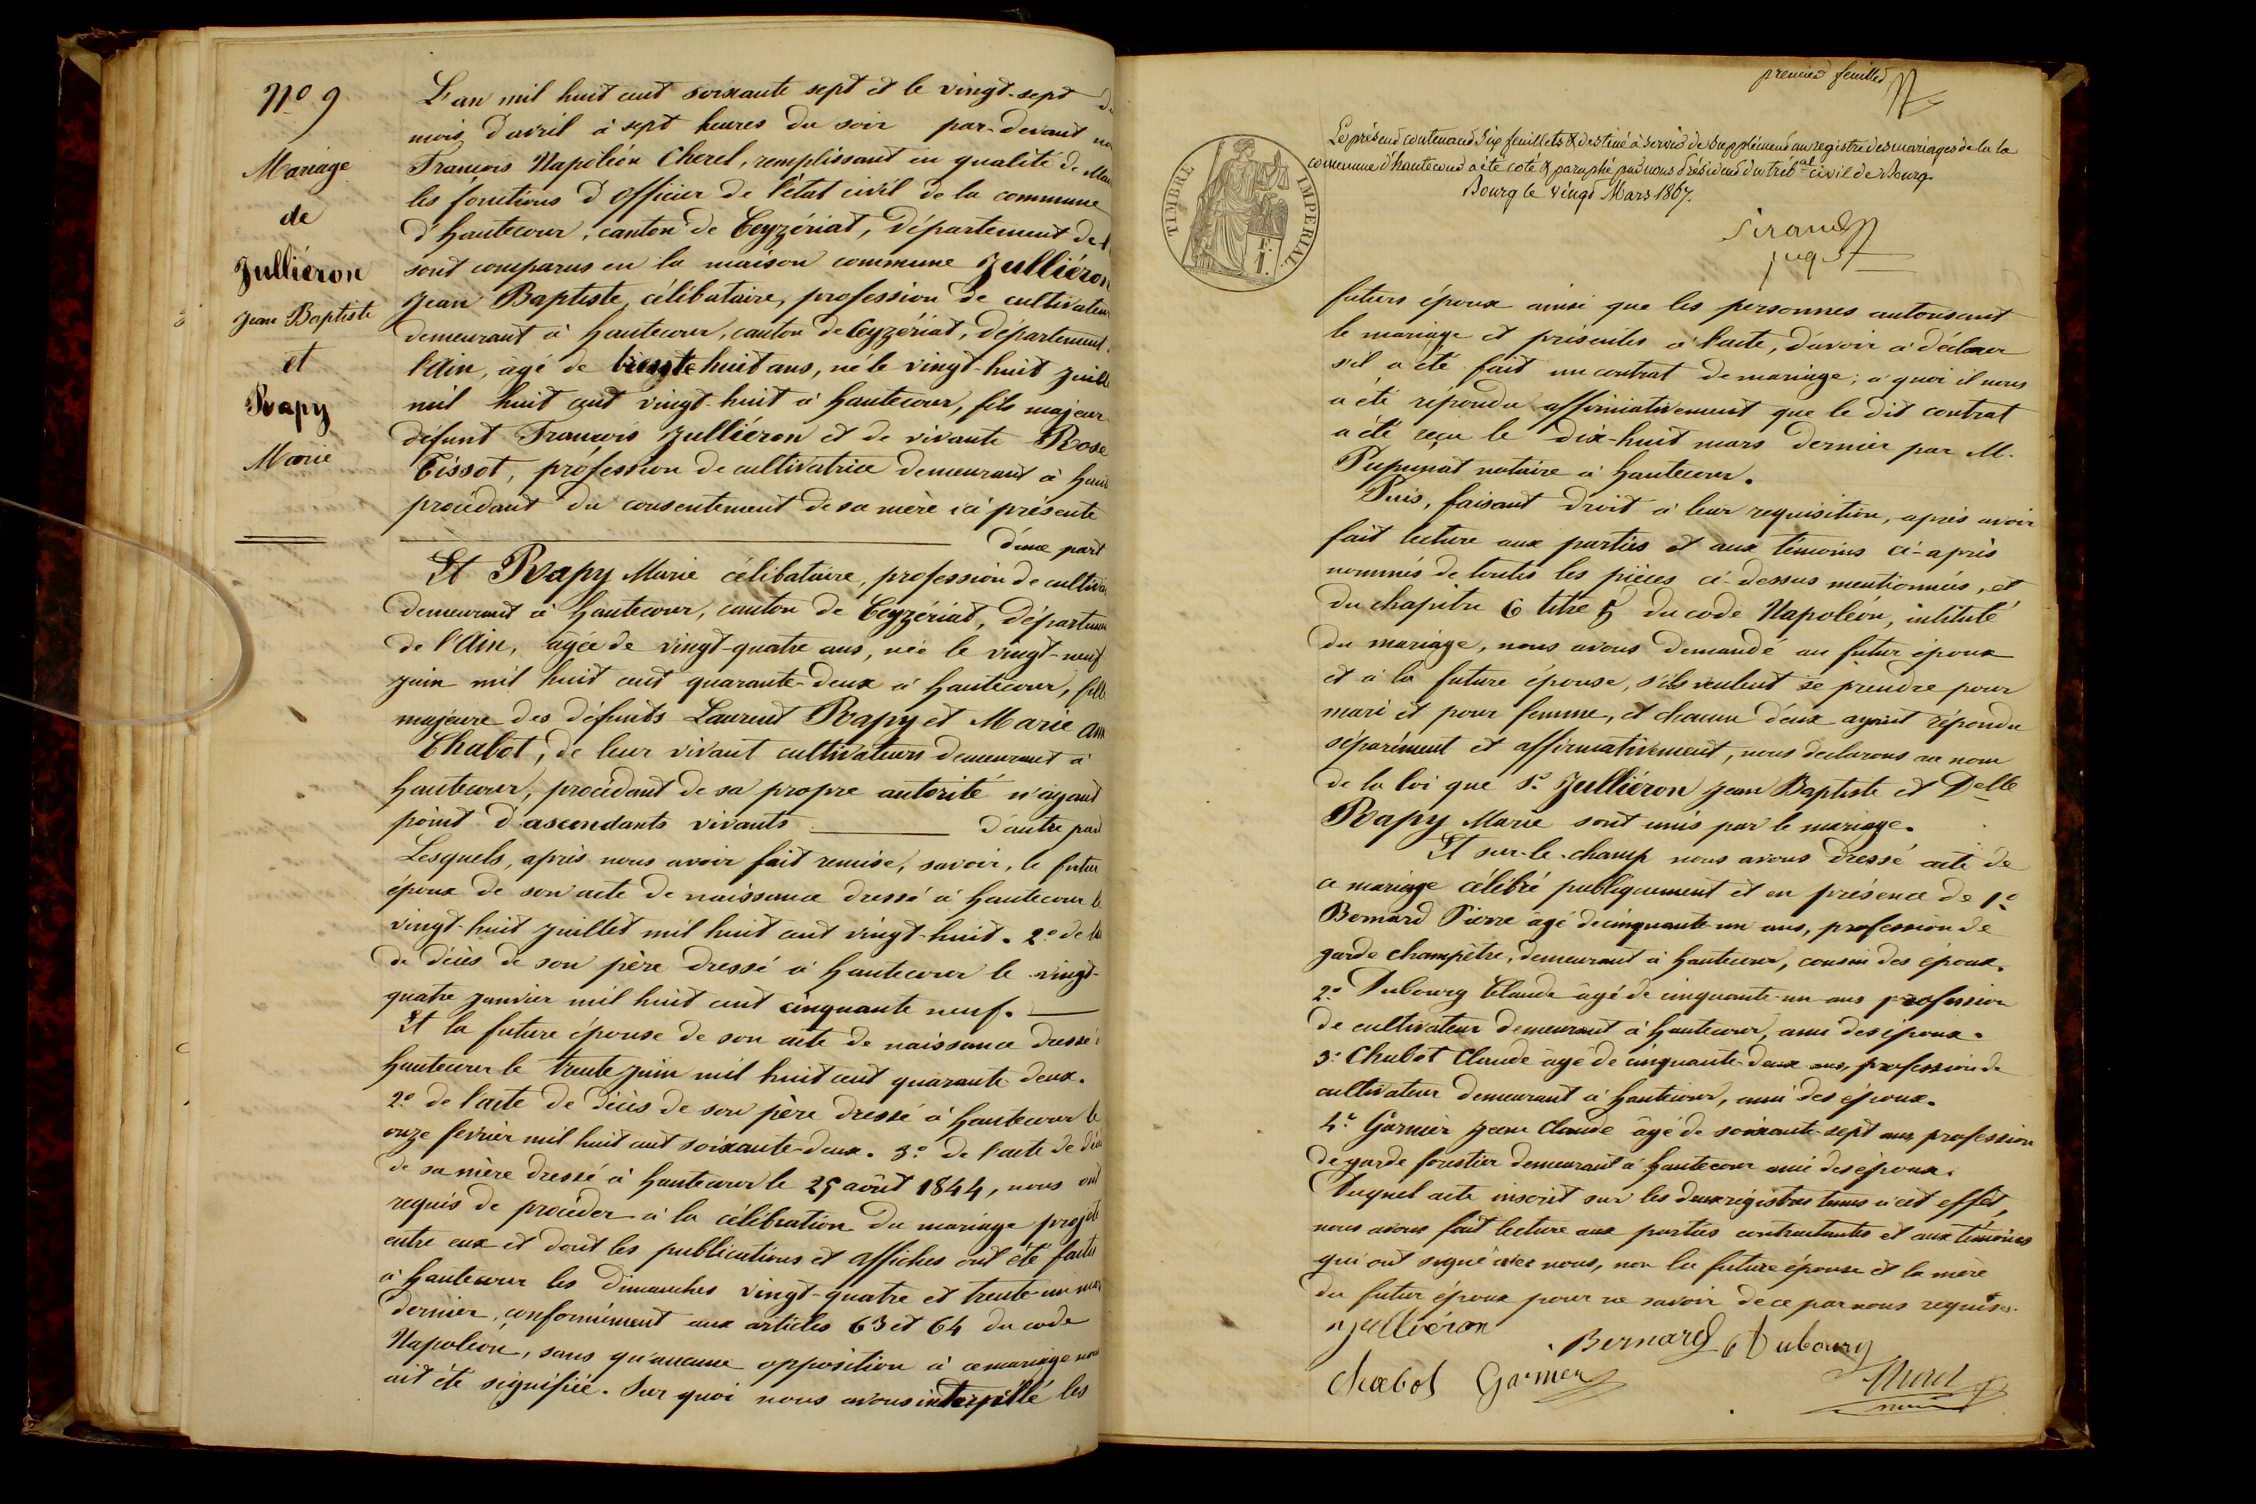 N° 9
Mariage
de
Julliéron
Jean Baptiste
et
Rapy
Marie
L'an mil huit cent soixante sept et le vingt-sept du
mois d'avril à sept heures du soir par-devant no
François Napoléon Cherel, remplissant en qualité de Mai
les fonctions d'Officier de l'état civil de la commune
d'hautecour, canton de Ceyzériat, Département de l
sont comparus en la maison commune Julliéron
Jean Baptiste, célibataire, profession de cultivateur
demeurant à hautecour, canton de Ceyzériat, département
l'Ain, âgé de huit ans, né le vingt-huit Juill
mil huit cent vingt-huit à hautecour, fils majeur
défunt François Julliéron et de vivante Rose
Tissot, profession de cultivatrice demeurant à haut
procédant du consentement de sa mère ici présente
d'une part
Et Rapy Marie célibataire, profession de cultiva
demeurant à hautecour, canton de Ceyzériat, départeme
de l'Ain, âgée de vingt-quatre ans, née le vingt-neuf
juin mil huit cent quarante-deux à hautecour, fille
majeure des défunts Laurent Rapy et Marie Ann
Chabot, de leur vivant cultivateurs demeurant à
hautecour, procédant de sa propre autorité n'ayant
point d'ascendants vivants d'autre part
Lesquels, après nous avoir fait remise, savoir, le futur
époux de son acte de naissance dressé à hautecour le
vingt-huit juillet mil huit cent vingt-huit. 2° de
de décès de son père dressé à hautecour le vingt-
quatre janvier mil huit cent cinquante neuf.
Et la future épouse de son acte de naissance dressé à
hautecour le trente juin mil huit cent quarante deux.
2° de l'acte de décès de son père dressé à hautecour le
onze février mil huit cent soixante-deux. 3° de l'acte de décè
de sa mère dressé à hautecour le 25 août 1844, nous ont
requis de procéder à la célébration du mariage projeté
entre eux et dont les publications et affiches ont été faites
à hautecour les dimanches vingt-quatre et trente-un mars
dernier, conformément aux articles 63 et 64 du code
Napoléon, sans qu'aucune opposition à ce mariage nous
ait été signifiée. Sur quoi nous avons interpellé les
premier feuillet
Le présent contenant dix feuillets & destiné à servir de supplément au registre des mariages de la
commune d'hautecour a été coté & paraphé par nous Président du tribal civil de Bourg
Bourg le vingt Mars 1867.
Sirand
juge
TIMBRE IMPERIAL
futurs époux ainsi que les personnes autorisant
le mariage et présentes à l'acte, d'avoir à déclarer
s'il a été fait un contrat de mariage; à quoi il nous
a été répondu affirmativement que le dit contrat
a été reçu le dix-huit mars dernier par M.
Pupunat notaire à hautecour.
Puis, faisant droit à leur requisition, après avoir
fait lecture aux parties et aux témoins ci-après
nommés de toutes les pièces ci-dessus mentionnées, et
du chapitre 6 titre 5 du code Napoléon, intitulé
du mariage, nous avons demandé au futur époux
et à la future épouse, s'ils veulent se prendre pour
mari et pour femme, et chacun d'eux ayant répondu
séparément et affirmativement, nous declarons au nom
de la loi que Sr. Julliéron Jean Baptiste et Delle
Rapy Marie sont unis par le mariage.
Et sur-le-champ nous avons dressé acte de
ce mariage célébré publiquement et en présence de 1°
Bernard Pierre âgé de cinquante-un ans, profession de
garde champêtre, demeurant à hautecour, cousin des époux.
2° Dubourg Claude âgé de cinquante-un ans profession
de cultivateur demeurant à hautecour, ami des époux.
3° Chabot Claude âgé de cinquante-deux ans, profession de
cultivateur demeurant à hautecour, ami des époux.
4° Garnier Jean Claude âgé de soixante-sept ans, profession
de garde forestier demeurant à hautecour ami des époux.
Duquel acte inscrit sur les deux régistres tenus à cet effet,
nous avons fait lecture aux parties contractantes et aux témoins
qui ont signé avec nous, non la future épouse et la mère
du futur époux pour ne savoir de ce par nous requises.
Julliéron
Bernard
Dubourg
Chabot
Garnier
Cherel